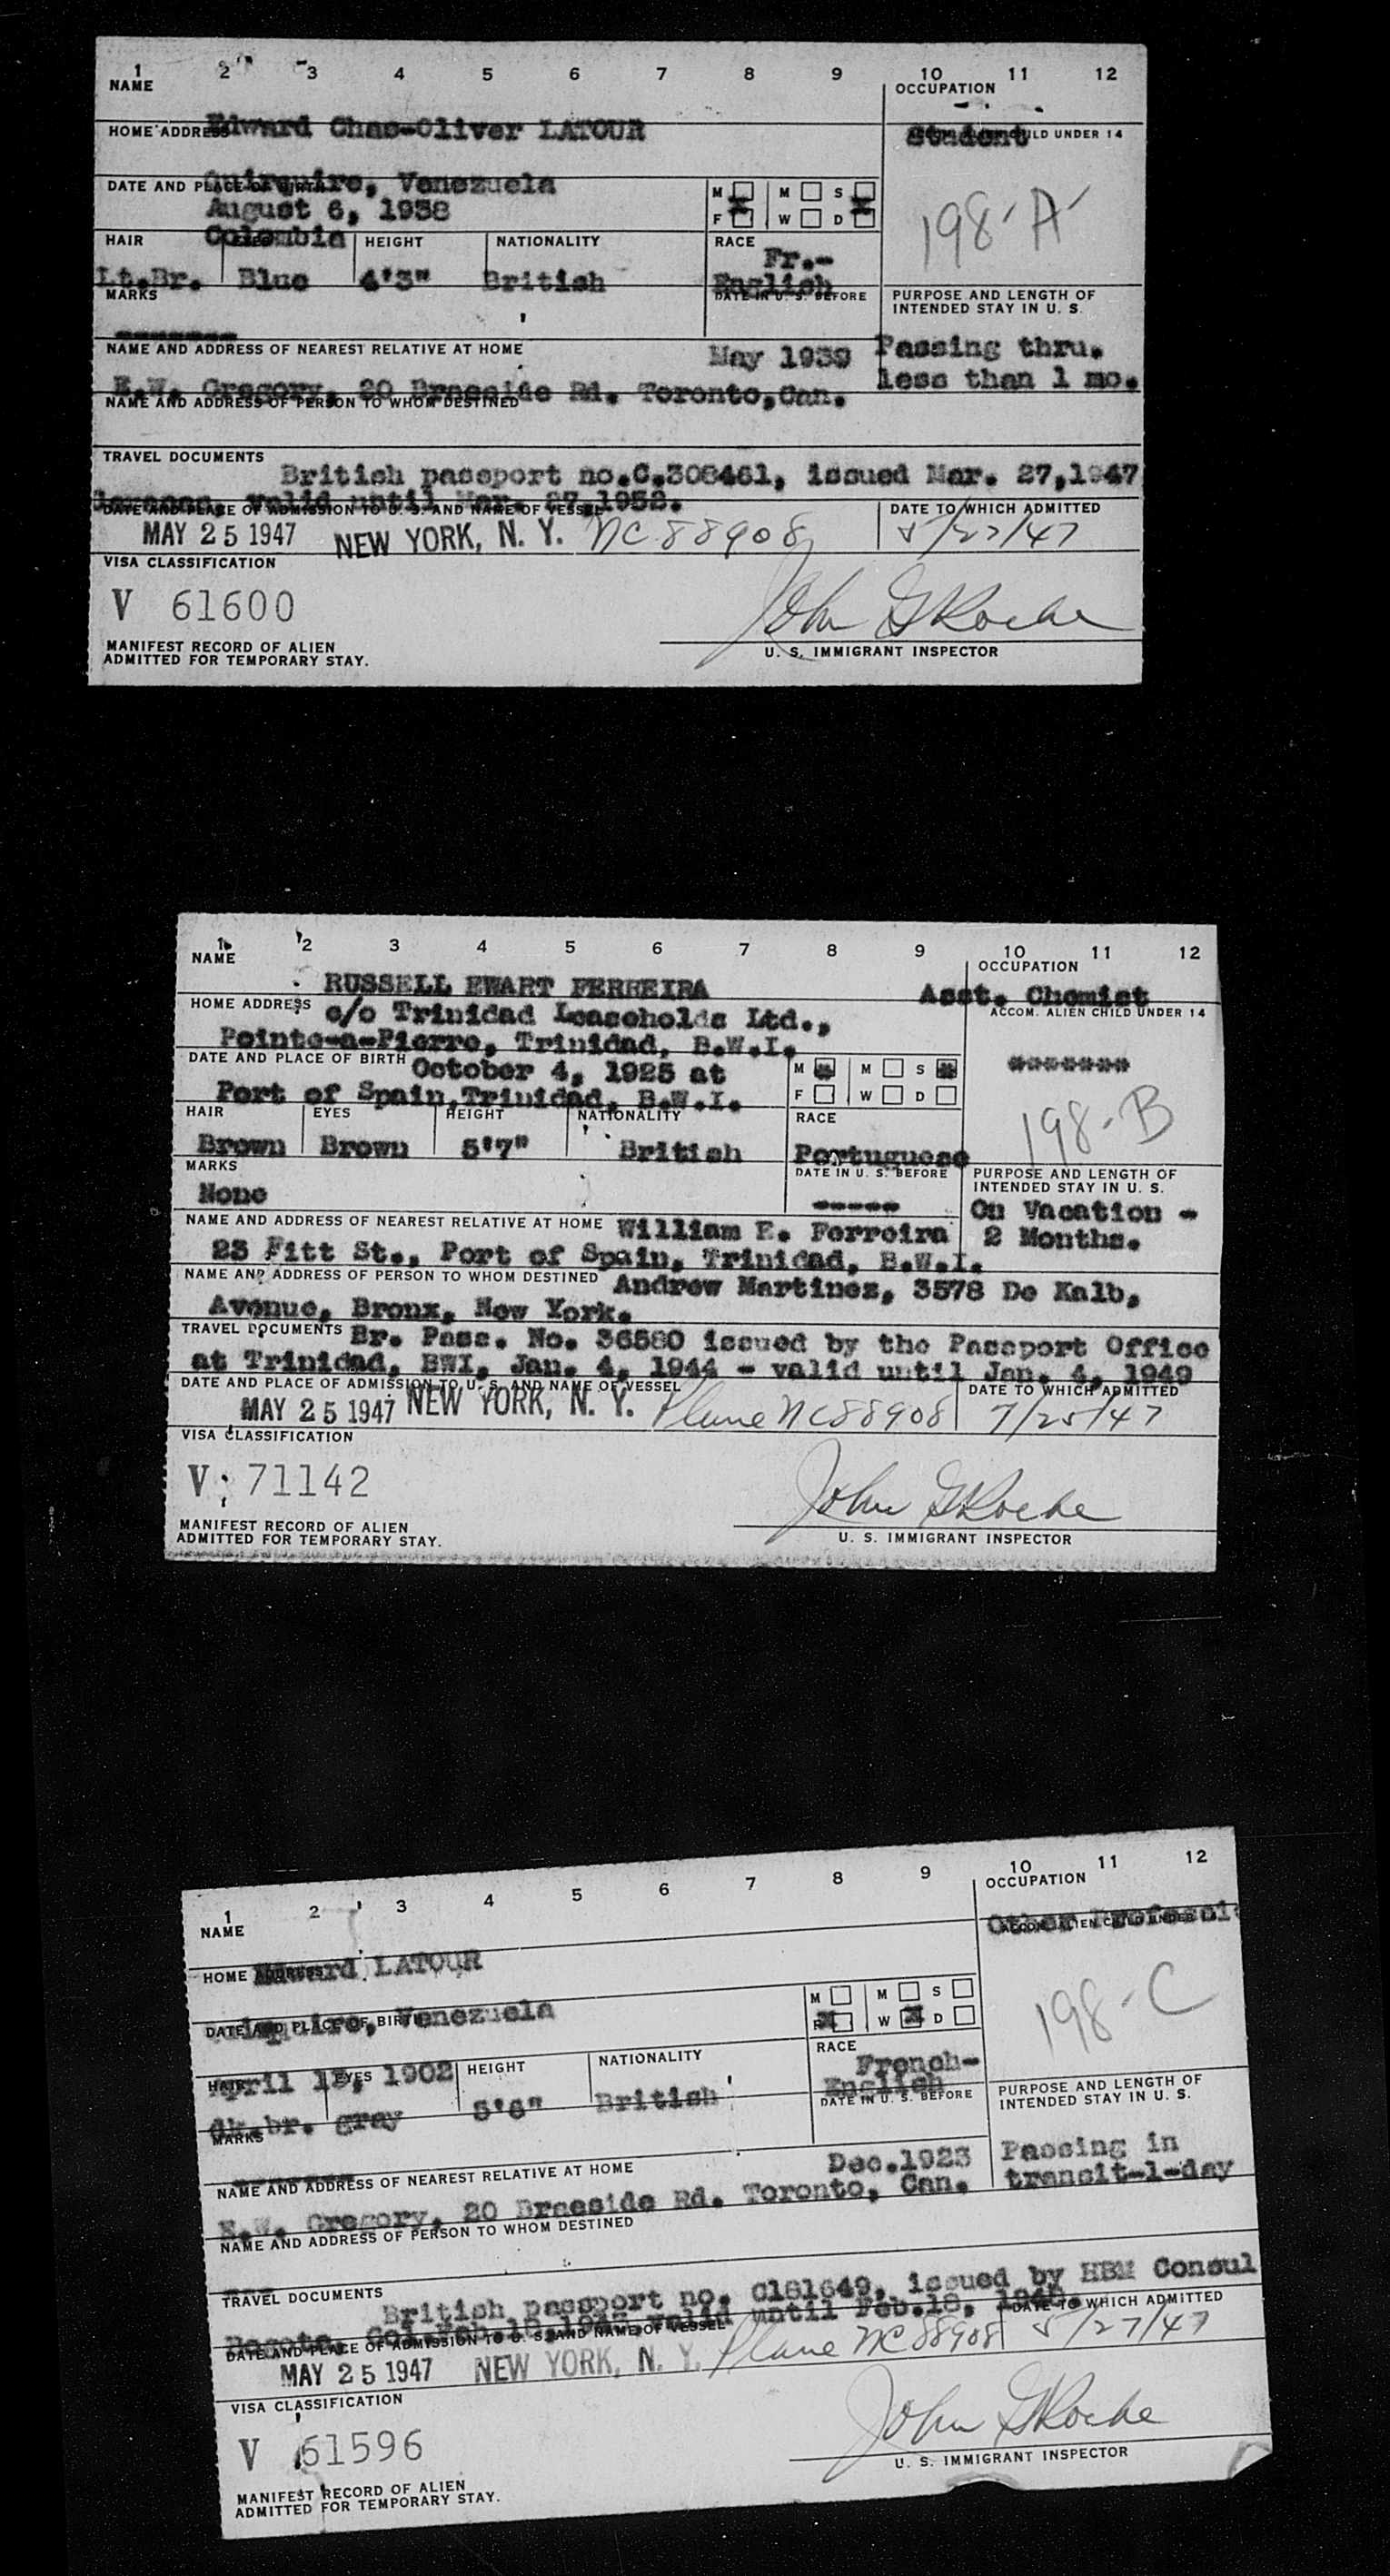 1 2 3 4 5 6 7 8 9 10 11 12
NAME
OCCUPATION
Edward Chas-Oliver LATOUR
Student
HOME ADDRESS
Quirequire, Venezuela
DATE AND PLACE OF BIRTH
August 6, 1938
Colombia
M M S
F W D
198-A
HAIR HEIGHT NATIONALITY RACE
Lt.Br. Blue 4'3" British Fr.-English
MARKS
DATE IN U. S. BEFORE
PURPOSE AND LENGTH OF
INTENDED STAY IN U. S.
May 1939
Passing thru.
less than 1 mo.
NAME AND ADDRESS OF NEAREST RELATIVE AT HOME
E.W. Gregory, 20 Braeside Rd. Toronto,Can.
NAME AND ADDRESS OF PERSON TO WHOM DESTINED
TRAVEL DOCUMENTS
British passport no.C.306461, issued Mar. 27,1947
Caracas, valid until Mar. 27,1952.
DATE AND PLACE OF ADMISSION TO U. S. AND NAME OF VESSEL
DATE TO WHICH ADMITTED
MAY 25 1947 NEW YORK, N. Y. NC 88908 5/27/47
VISA CLASSIFICATION
V 61600
John G Roche
MANIFEST RECORD OF ALIEN
ADMITTED FOR TEMPORARY STAY.
U. S. IMMIGRANT INSPECTOR
1 2 3 4 5 6 7 8 9 10 11 12
NAME
OCCUPATION
RUSSELL EWART FERREIRA
Asst. Chemist
HOME ADDRESS c/o Trinidad Leaseholds Ltd.,
ACCOM. ALIEN CHILD UNDER 14
Pointe-a-Pierre, Trinidad, B.W.I.
DATE AND PLACE OF BIRTH October 4, 1925 at
Port of Spain,Trinidad, B.W.I.
M M S
F W D
198-B
HAIR EYES HEIGHT NATIONALITY RACE
Brown Brown 5'7" British Portuguese
MARKS
DATE IN U. S. BEFORE
PURPOSE AND LENGTH OF
INTENDED STAY IN U. S.
None
-----
On Vacation -
2 Months.
NAME AND ADDRESS OF NEAREST RELATIVE AT HOME William E. Ferreira
23 Fitt St., Port of Spain, Trinidad, B.W.I.
NAME AND ADDRESS OF PERSON TO WHOM DESTINED Andrew Martinez, 3578 De Kalb,
Avenue, Bronx, New York.
TRAVEL DOCUMENTS Br. Pass. No. 36580 issued by the Passport Office
at Trinidad, BWI, Jan. 4, 1944 - valid until Jan. 4, 1949
DATE AND PLACE OF ADMISSION TO U. S. AND NAME OF VESSEL
DATE TO WHICH ADMITTED
MAY 25 1947 NEW YORK, N. Y. Plane NC88908 7/25/47
VISA CLASSIFICATION
V 71142
John G Roche
MANIFEST RECORD OF ALIEN
ADMITTED FOR TEMPORARY STAY.
U. S. IMMIGRANT INSPECTOR
1 2 3 4 5 6 7 8 9 10 11 12
NAME
OCCUPATION
LATOUR
HOME ADDRESS
Venezuela
DATE AND PLACE OF BIRTH
M M S
F W D
198-C
April 1902
HAIR EYES HEIGHT NATIONALITY RACE
dk.br. gray 5'6" British French-English
MARKS
DATE IN U. S. BEFORE
PURPOSE AND LENGTH OF
INTENDED STAY IN U. S.
Dec.1923
Passing in
transit-1-day
NAME AND ADDRESS OF NEAREST RELATIVE AT HOME
E.W. Gregory, 20 Braeside Rd. Toronto, Can.
NAME AND ADDRESS OF PERSON TO WHOM DESTINED
---
TRAVEL DOCUMENTS
British passport no. C161649, issued by HBM Consul
Bogota, valid until Feb.18,
DATE AND PLACE OF ADMISSION TO U. S. AND NAME OF VESSEL
DATE TO WHICH ADMITTED
MAY 25 1947 NEW YORK, N. Y. Plane NC 88908 5/27/47
VISA CLASSIFICATION
V 61596
John G Roche
MANIFEST RECORD OF ALIEN
ADMITTED FOR TEMPORARY STAY.
U. S. IMMIGRANT INSPECTOR